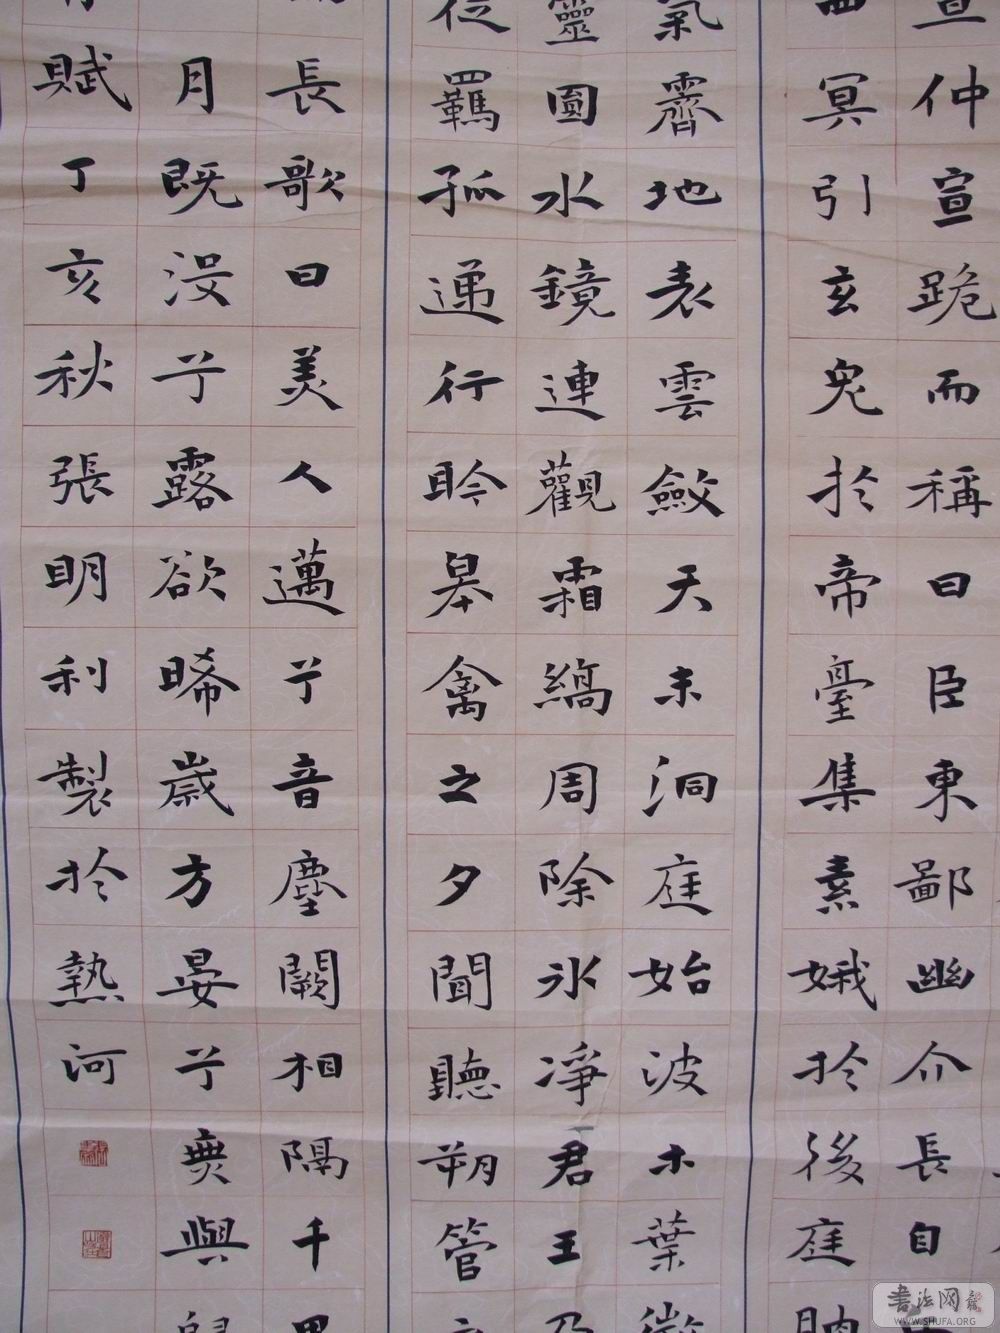 宣仲宣跪而稱曰臣東鄙幽介長自
西冥引玄兔於帝臺集素娥於後庭朒
氣霽地表雲斂天末洞庭始波木葉微
靈圓水鏡連觀霜縞周除冰凈君王乃
從羈孤遞行聆皋禽之夕聞聽朔管
長歌曰美人邁兮音塵闕相隔千里
月既沒兮露欲晞歲方晏兮無與歸
賦丁亥秋張明利製於熱河
書法网
WWW.SHUFA.ORG